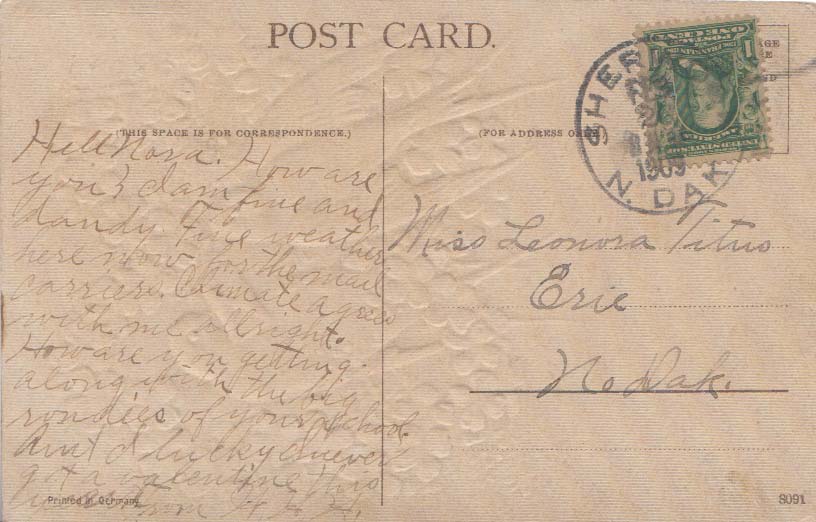 POST CARD.
(THIS SPACE IS FOR CORRESPONDENCE.)
(FOR ADDRESS
1 ONE CENT 1
UNITED STATES OF AMERICA
N. DAK
1909
Hell Nora. How are
you? I am fine and
dandy. Fine weather
here now for the mail
carriers. Climate agrees
with me allright.
How are you getting
along with the big
rondies of your school.
Aint I lucky I never
got a valentine this
from H. H.
Miss Leonora Titus
Erie
No Dak.
Printed in Germany
8091